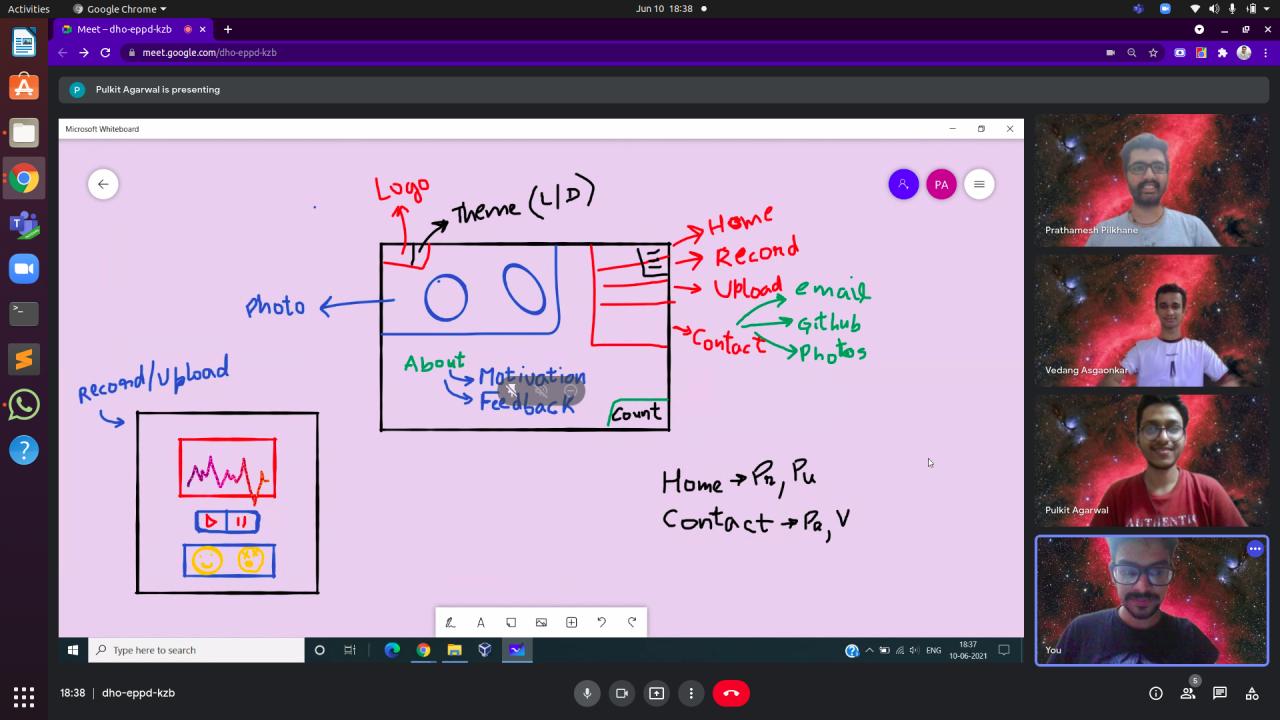 Activities
Google Chrome
Jun 10 18:38
Meet – dho-eppd-kzb
meet.google.com/dho-eppd-kzb
P
Pulkit Agarwal is presenting
Microsoft Whiteboard
PA
Logo
Theme (L|D)
Home
Record
Upload
Contact
email
Github
Photos
Photo
About
Motivation
Feedback
Count
Record/Upload
Home → Pr, Pu
Contact → Pr, V
Type here to search
ENG
18:37
10-06-2021
Prathamesh Pilkhane
Vedang Asgaonkar
AUTHENTIC
Pulkit Agarwal
You
18:38 | dho-eppd-kzb
5